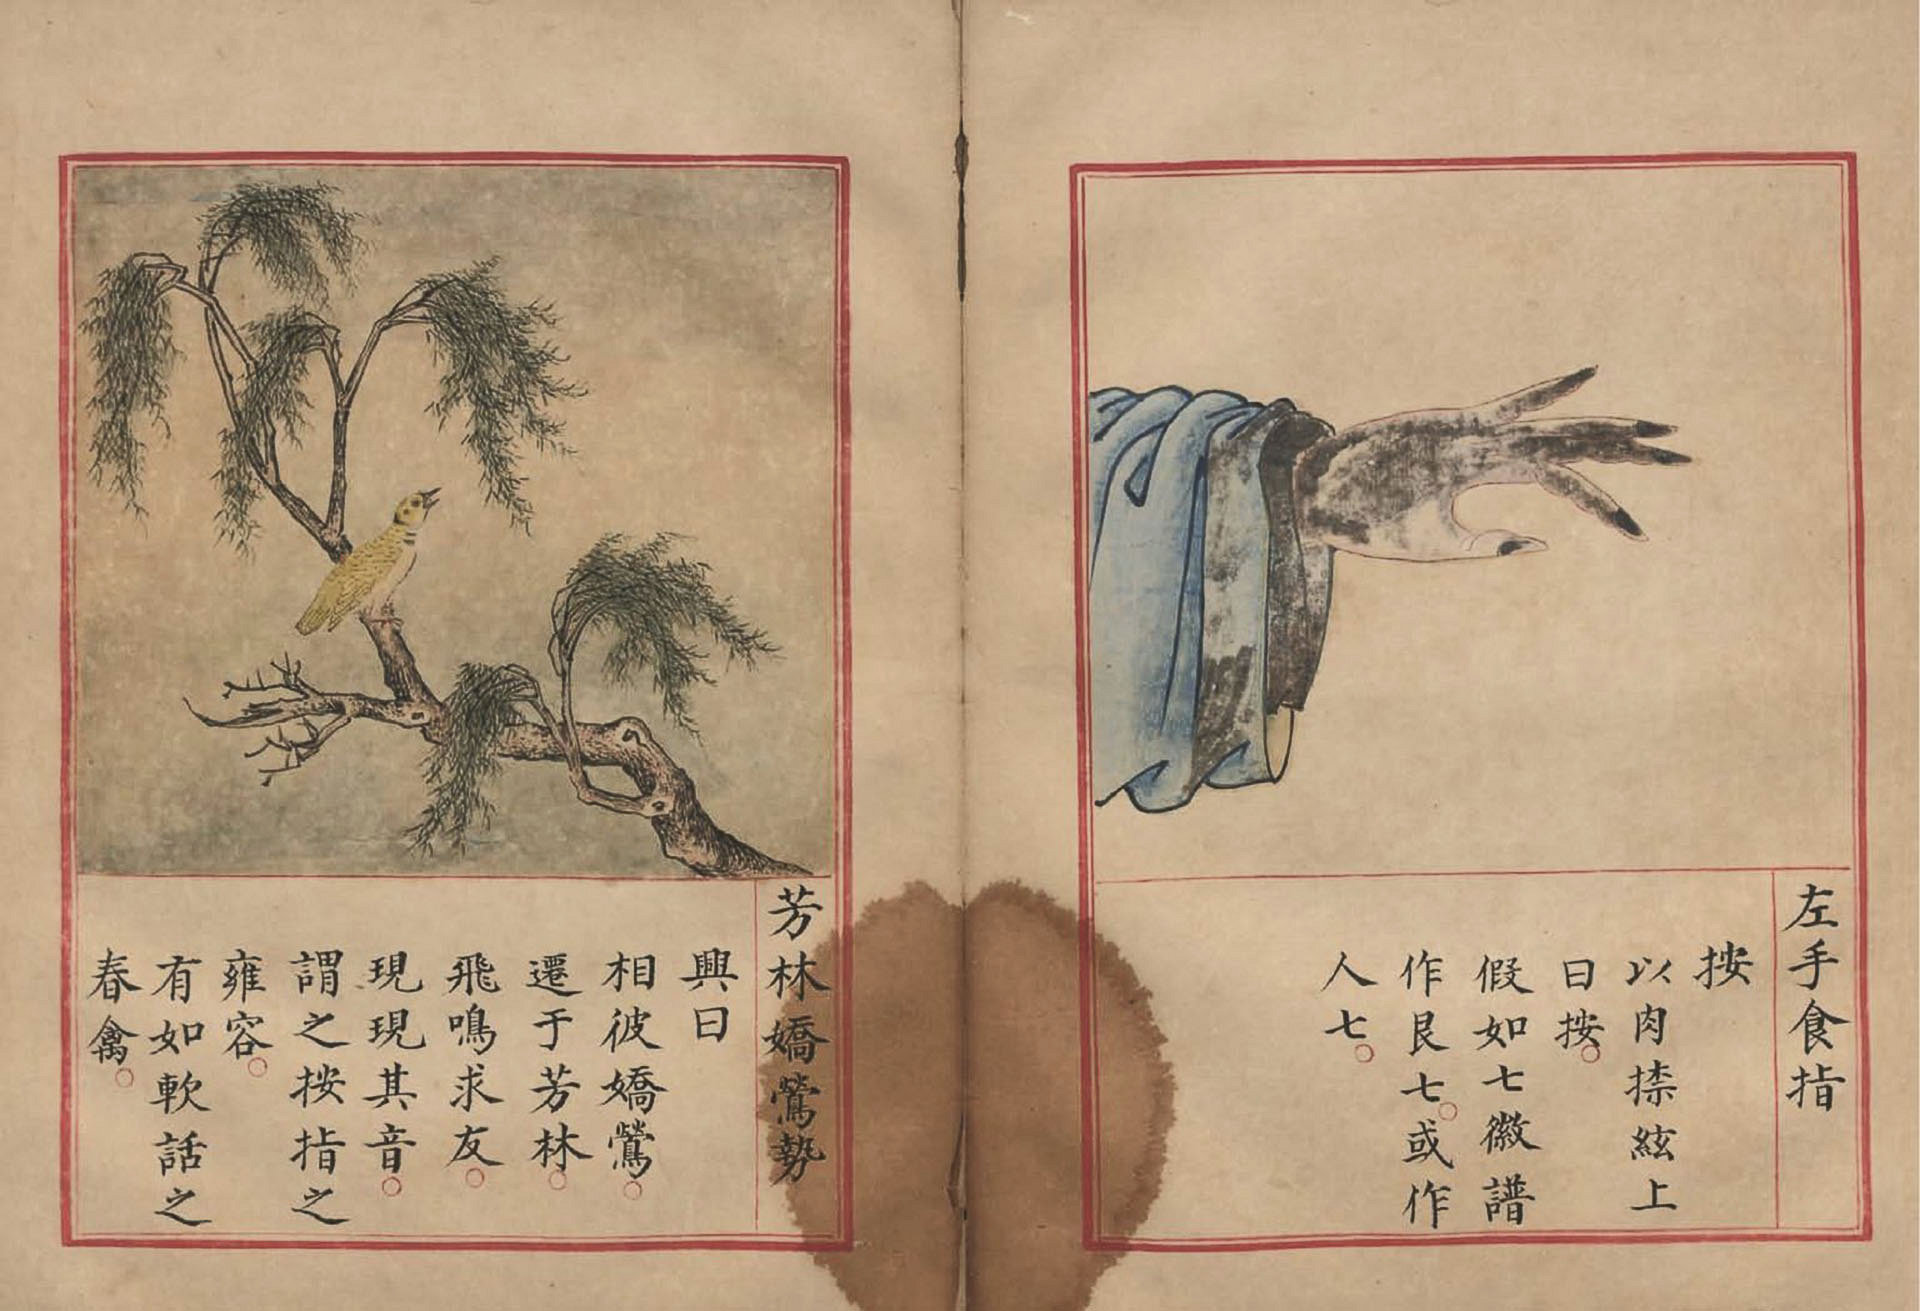 左手食指
按
以肉捺絃上
曰按。
假如七徽譜
作艮七。或作
人七。
芳林嬌鶯勢
興曰
相彼嬌鶯。
遷于芳林。
飛鳴求友。
現現其音。
謂之按指之
雍容。
有如軟話之
春禽。